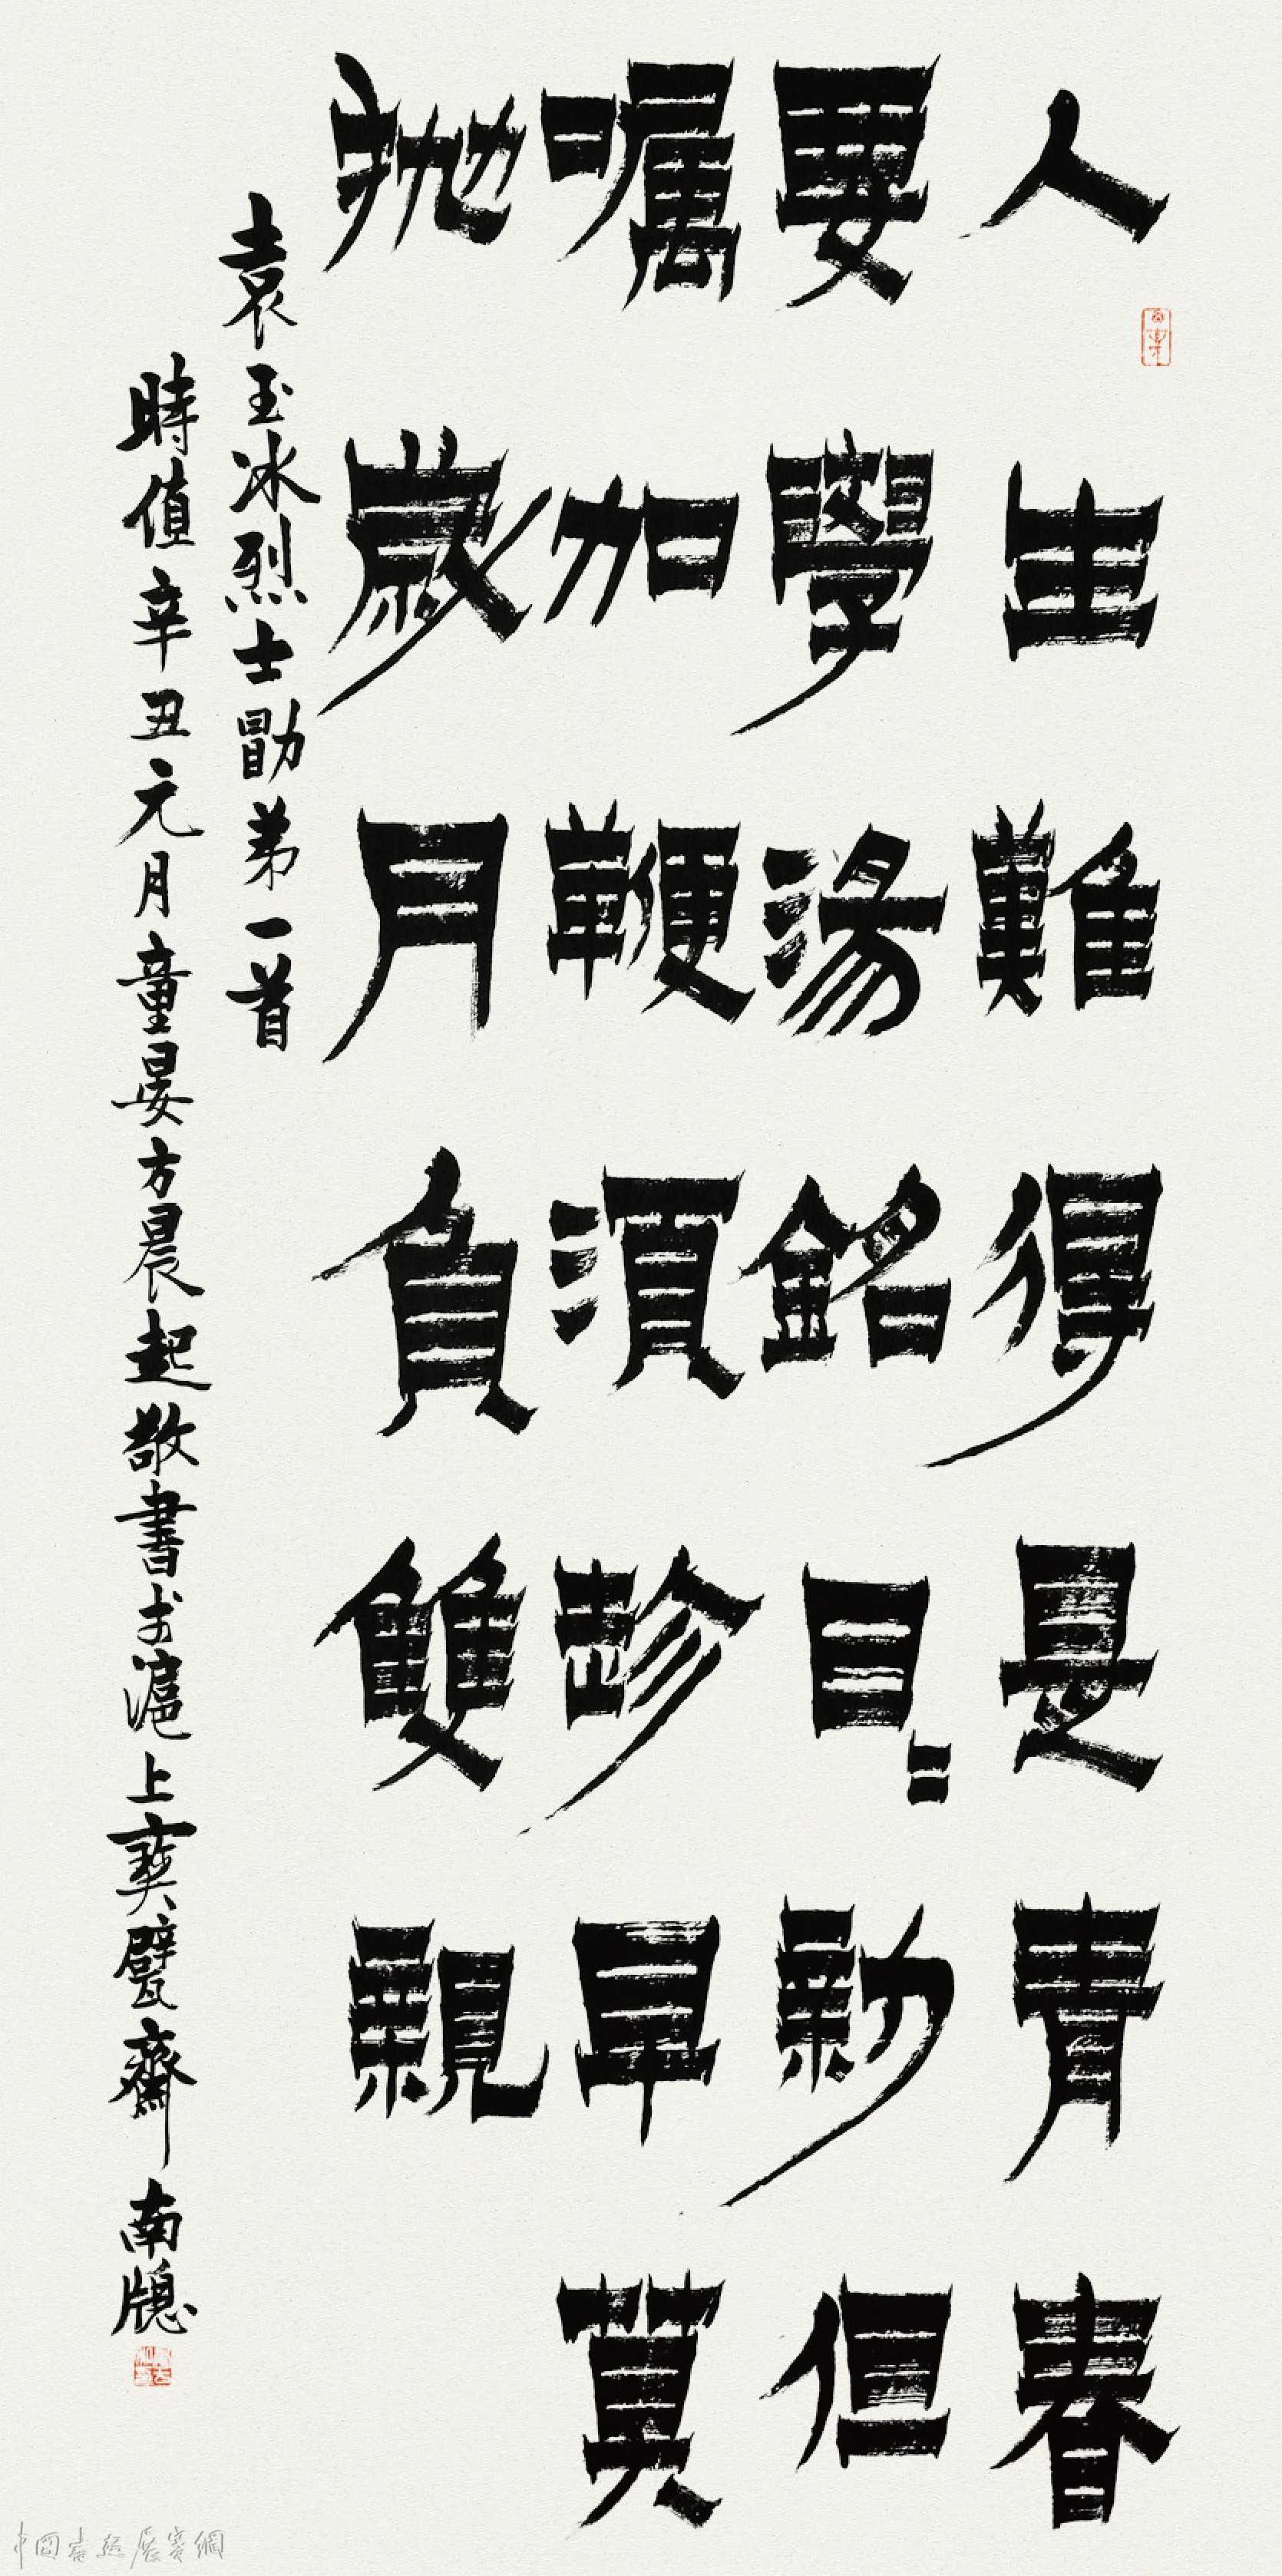 人生難得是青春
要學湯銘日〻新但
囑加鞭須趁早莫
抛歲月負雙親
袁玉冰烈士勖弟一首
時值辛丑元月童晏方晨起敬書于滬上寶甓齋南窗
中國書法展賽網